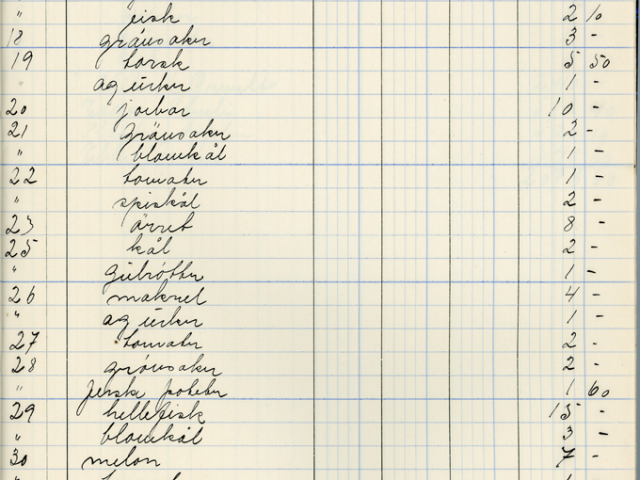 " fisk 2 10
18 grönsaker 3 -
19 torsk 5 50
agurker 1 -
20 jorbær 10 -
21 grönsaker 2 -
" blomkål 1 -
22 tomater 1 -
" spiskål 2 -
23 örret 8 -
25 kål 2 -
" gulrötter 1 -
26 makrel 4 -
" agurker 1 -
27 tomater 2 -
28 grönsaker 2 -
" fersk poteter 1 60
29 hellefisk 15 -
" blomkål 3 -
30 melon 7 -